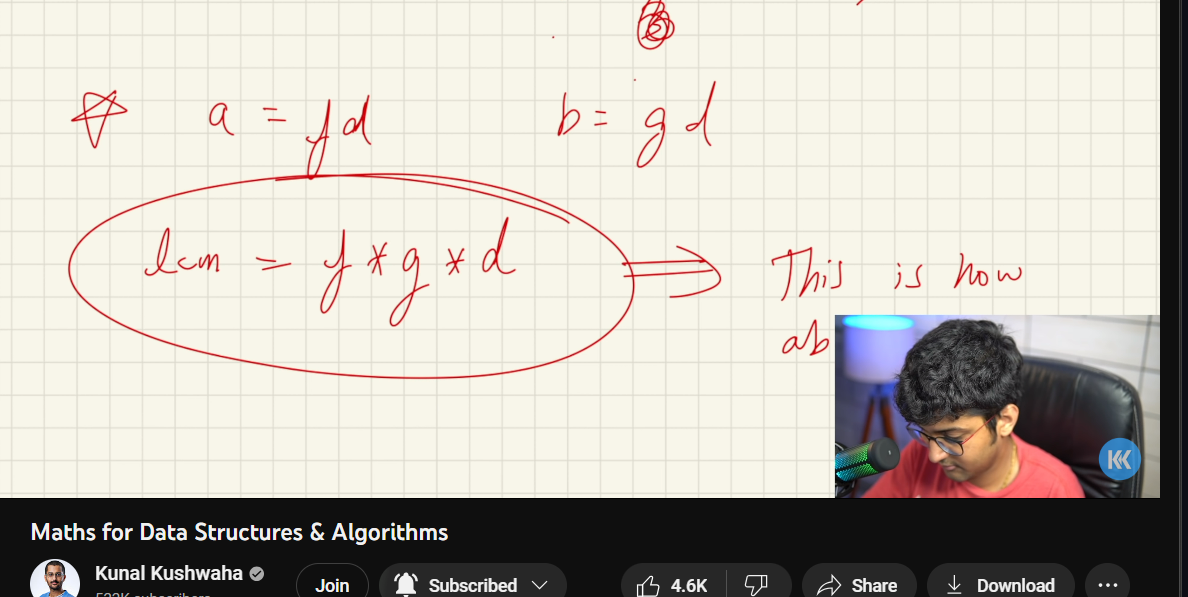 a = fd b = gd
lcm = f * g * d ⇒ This is how
ab
Maths for Data Structures & Algorithms
Kunal Kushwaha
Join Subscribed 4.6K Share Download